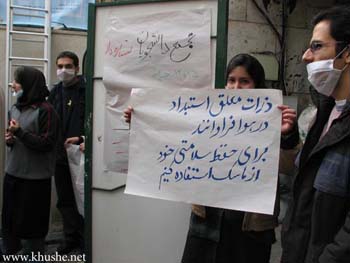 تجمع دانشجویان
ذرات معلق استبداد
در هوا فراوانند
برای حفظ سلامتی خود
از ماسک استفاده کنیم
www.khushe.net